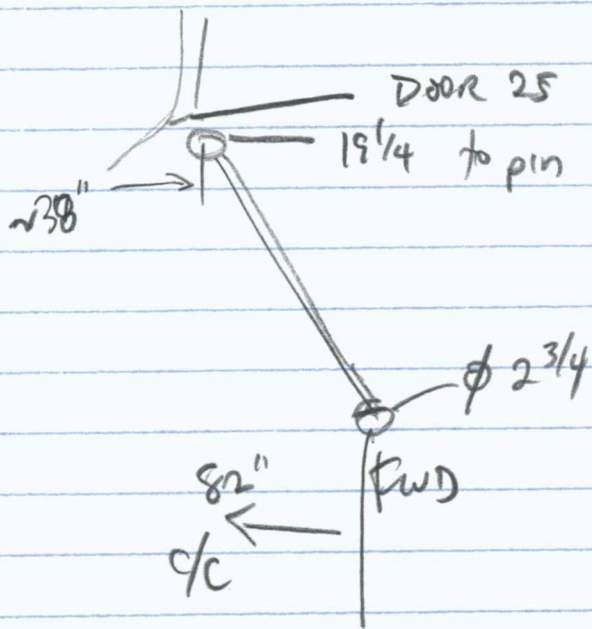 DOOR 25
19 1/4 to pin
~38"
φ 2 3/4
82"
FWD
c/c